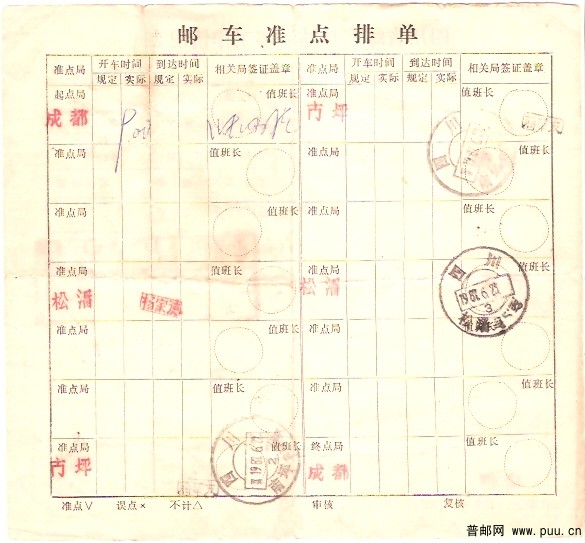 邮车准点排单
准点局 开车时间 到达时间 相关局签证盖章 准点局 开车时间 到达时间 相关局签证盖章
规定 实际 规定 实际 规定 实际 规定 实际
起点局 值班长 准点局 值班长
成都 9.00
准点局 值班长 准点局 值班长
四川
准点局 值班长 准点局 值班长
准点局 值班长 准点局 值班长
松潘 松潘
四川
1987.6.23
3
松潘
准点局 值班长 准点局 值班长
准点局 值班长 准点局 值班长
四川
1987.6.2
2
准点局 值班长 终点局 值班长
成都
准点∨ 误点× 不计△ 审核 复核
普邮网 www.puu.cn